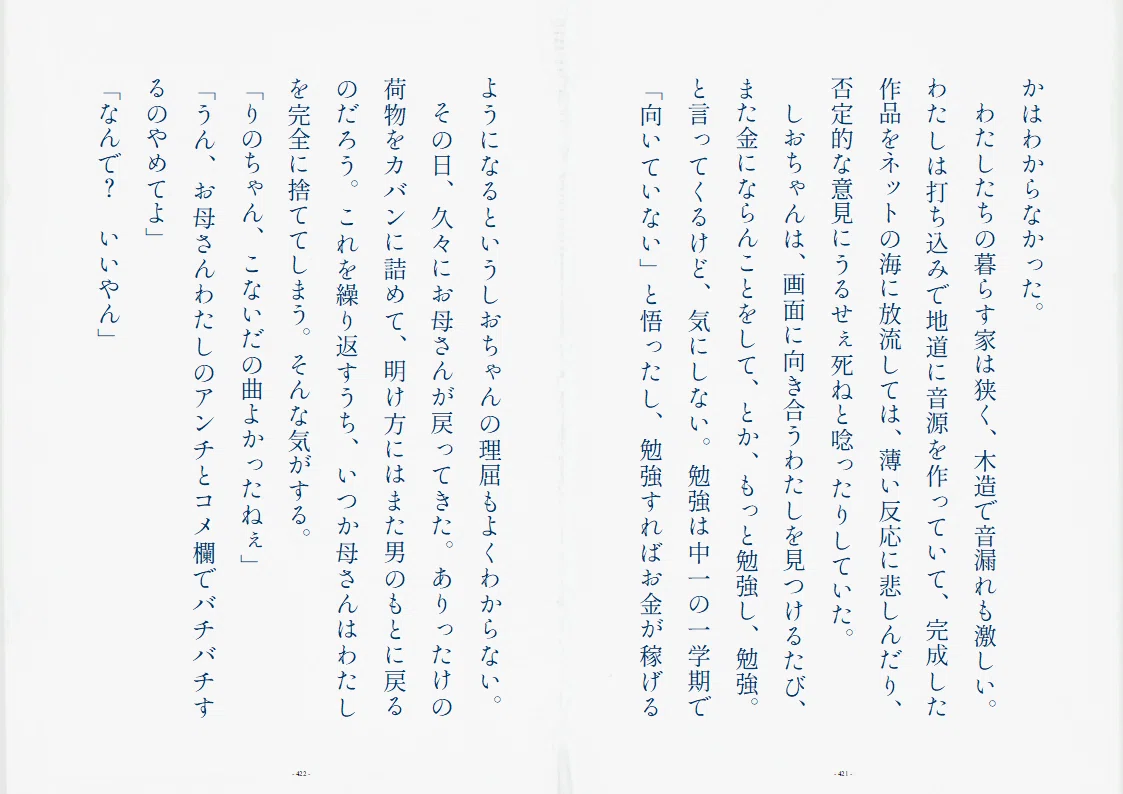 かはわからなかった。
　わたしたちの暮らす家は狭く、木造で音漏れも激しい。
わたしは打ち込みで地道に音源を作っていて、完成した
作品をネットの海に放流しては、薄い反応に悲しんだり、
否定的な意見にうるせぇ死ねと唸ったりしていた。
　しおちゃんは、画面に向き合うわたしを見つけるたび、
また金にならんことをして、とか、もっと勉強し、勉強。
と言ってくるけど、気にしない。勉強は中一の一学期で
「向いていない」と悟ったし、勉強すればお金が稼げる
- 421 -
ようになるというしおちゃんの理屈もよくわからない。
　その日、久々にお母さんが戻ってきた。ありったけの
荷物をカバンに詰めて、明け方にはまた男のもとに戻る
のだろう。これを繰り返すうち、いつか母さんはわたし
を完全に捨ててしまう。そんな気がする。
「りのちゃん、こないだの曲よかったねぇ」
「うん、お母さんわたしのアンチとコメ欄でバチバチす
るのやめてよ」
「なんで？　いいやん」
- 422 -